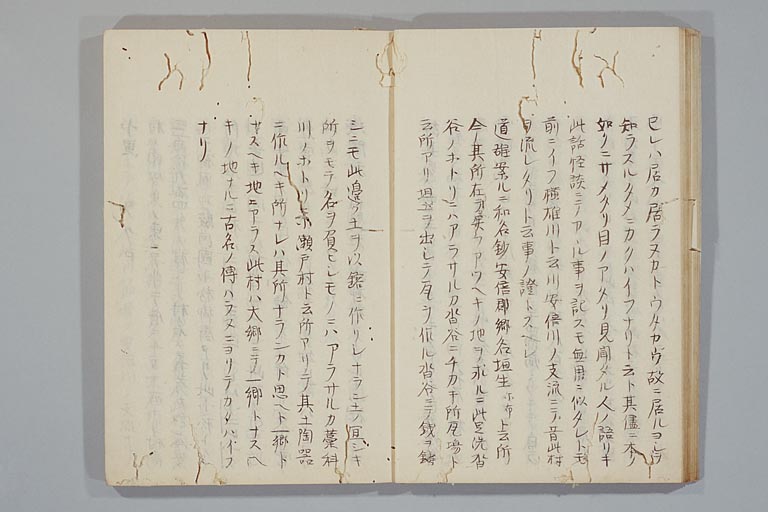 ヒレハ居カ居ラヌカトウタカヴ故ニ居ルヨシヲ
知ラスルタメニカクハイフナリト云ト其儘ニ本ノ
如クニサメタリ目ノアタリ見聞タル人ノ語リキ
此話怪談ニテアル事ヲ記スモ無用ニ似タレトモ
前ニイフ横雄川ト云川安倍川ノ支流ニテ昔此村
ヲ流レタリト云事ノ證トスヘシ
道雄案ルニ和名鈔安倍郡郷名垣生 上云所
今其所在ヲ失フアワヘキノ地ヲ求ルニ此足洗沓
谷ノホトリニハアラサルカ沓谷ニチカキ所瓦場ト
云所アリ埴ヲ出シテ瓦ヲ作ル沓谷ニテ銭ヲ鋳
シニモ此邊ノ土ヲ以鎔ニ作リシナラン土ノ宜シキ
所ヲモテ名ヲ負ヒシモノニハアラサルカ藁科
川ノホトリニ瀬戸村ト云所アリテ其土陶器
ニ作ルヘキ所ナレハ其所ナランカト思ヘト一郷ト
ナスヘキ地ニアラス此村ハ大郷ニテ一郷トナスヘ
キノ地ナルニ古名ノ傳ハラヌニヨリテカクハイフ
ナリ